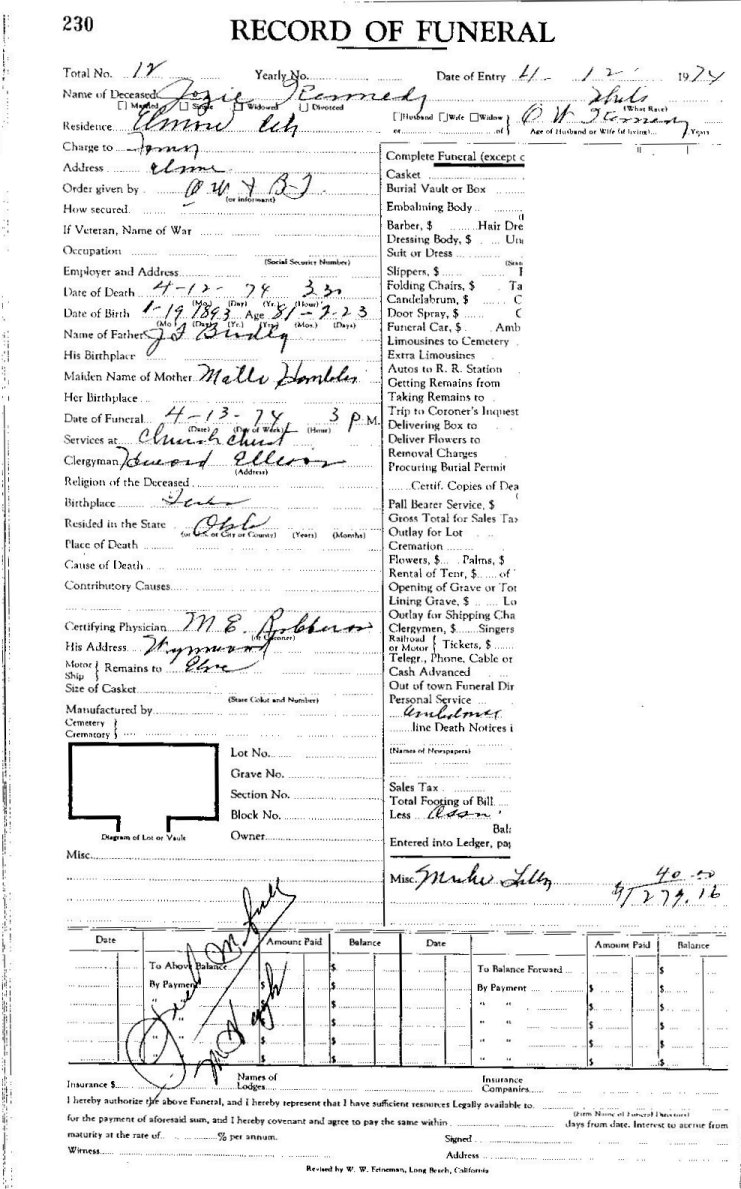 230
RECORD OF FUNERAL
Total No. 12 Yearly No. Date of Entry 4 - 12 1974
Name of Deceased Jozie Kennedy
[ ] Married [ ] Single [ ] Widowed [ ] Divorced
(What Race)
Residence Elmore City [ ]Husband [ ]Wife [ ]Widow O W Kennedy
or of Age of Husband or Wife (if living) Years
Charge to
Complete Funeral (except c
Address
Casket
Order given by O W & B J
(or informant)
Burial Vault or Box
How secured.
Embalming Body
If Veteran, Name of War
Barber, $ Hair Dre
Dressing Body, $ Un
Occupation
(Social Security Number)
Suit or Dress
Employer and Address
Slippers, $
Date of Death 4-12-74 3 30
(Mo.) (Day) (Yr.) (Hour)
Folding Chairs, $ Ta
Candelabrum, $ C
Date of Birth 1-19 1893 Age 81-2-23
(Mo.) (Day) (Yr.) (Yrs.) (Mos.) (Days)
Door Spray, $ C
Name of Father
Funeral Car, $ Amb
Limousines to Cemetery
His Birthplace
Extra Limousines
Autos to R. R. Station
Maiden Name of Mother
Getting Remains from
Her Birthplace
Taking Remains to
Date of Funeral 4-13-74 3 P M.
(Date) (Day of Week) (Hour)
Trip to Coroner's Inquest
Delivering Box to
Services at Church Christ
Deliver Flowers to
Clergyman
(Address)
Removal Charges
Procuring Burial Permit
Religion of the Deceased
Certif. Copies of Dea
Birthplace
Pall Bearer Service, $
Resided in the State
(or U.S. or City or County) (Years) (Months)
Gross Total for Sales Tax
Outlay for Lot
Place of Death
Cremation
Cause of Death
Flowers, $ Palms, $
Rental of Tent, $ of
Contributory Causes
Opening of Grave or Tor
Lining Grave, $ Lo
Outlay for Shipping Cha
Certifying Physician M E Robberson
(or Coroner)
Clergymen, $ Singers
His Address Wynnewood
Railroad or Motor } Tickets, $
Telegr., Phone, Cable or
Motor Ship } Remains to
Cash Advanced
Size of Casket
(State Color and Number)
Out of town Funeral Dir
Personal Service
Manufactured by
Cemetery
Crematory }
line Death Notices i
(Names of Newspapers)
Lot No.
Grave No.
Section No.
Sales Tax
Total Footing of Bill
Block No.
Less Assn
Diagram of Lot or Vault
Owner
Bal
Entered into Ledger, pag
Misc.
Misc. 40.00
279.16
Date Amount Paid Balance Date Amount Paid Balance
To Above Balance $ To Balance Forward $
By Payment $ $ By Payment $ $
" $ $ " " $ $
" $ $ " " $ $
" $ $ " " $ $
" $ $ " " $ $
Insurance $ Names of Lodges Insurance Companies
I hereby authorize the above Funeral, and I hereby represent that I have sufficient resources Legally available to
(Firm Name of Funeral Directors)
for the payment of aforesaid sum, and I hereby covenant and agree to pay the same within days from date. Interest to accrue from
maturity at the rate of % per annum. Signed
Witness Address
Revised by W. W. Feineman, Long Beach, California